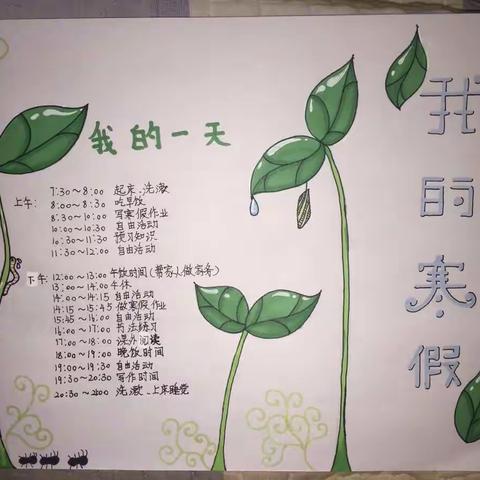 我的寒假
我的一天
上午:
7:30～8:00 起床、洗漱
8:00～8:30 吃早饭
8:30～10:00 写寒假作业
10:00～10:30 自由活动
10:30～11:30 预习知识
11:30～12:00 自由活动
下午:
12:00～13:00 午饭时间(帮家人做家务)
13:00～14:00 午休
14:00～14:15 自由活动
14:15～15:45 做寒假作业
15:45～16:00 自由活动
16:00～17:00 书法练习
17:00～18:00 课外阅读
18:00～19:00 晚饭时间
19:00～19:30 自由活动
19:30～20:30 写作时间
20:30～ 洗漱、上床睡觉